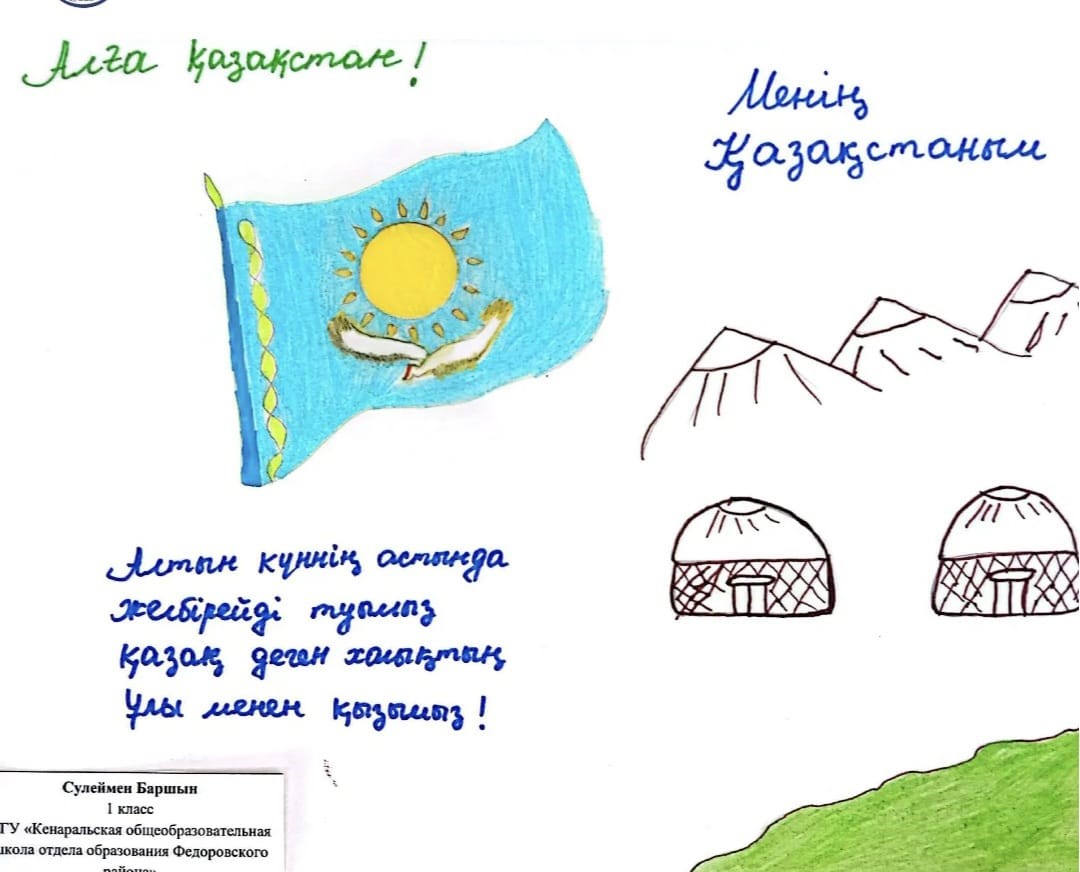 Алға Қазақстан!
Менің
Қазақстаным
Алтын күннің астында
желбірейді туымыз
Қазақ деген халықтың
Ұлы менен қызымыз!
Сулеймен Баршын
1 класс
ГУ «Кенаральская общеобразовательная
школа отдела образования Федоровского
района»